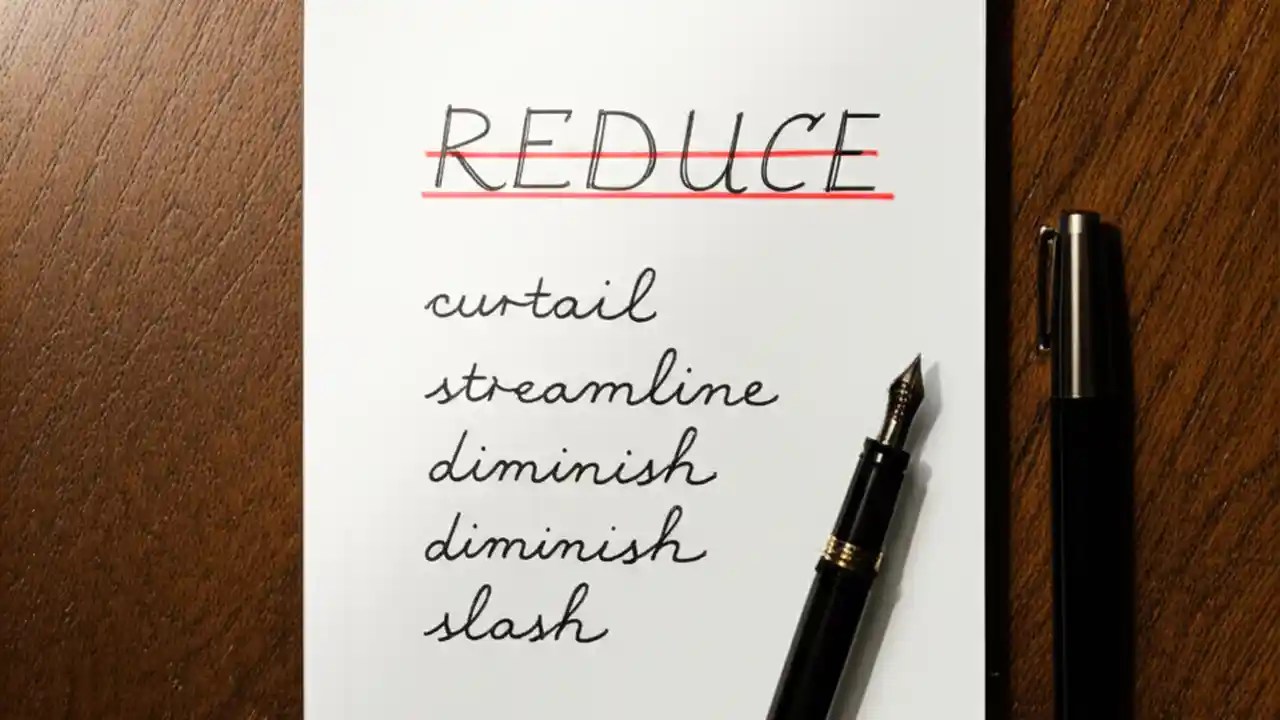 REDUCE
curtail
streamline
diminish
diminish
slash